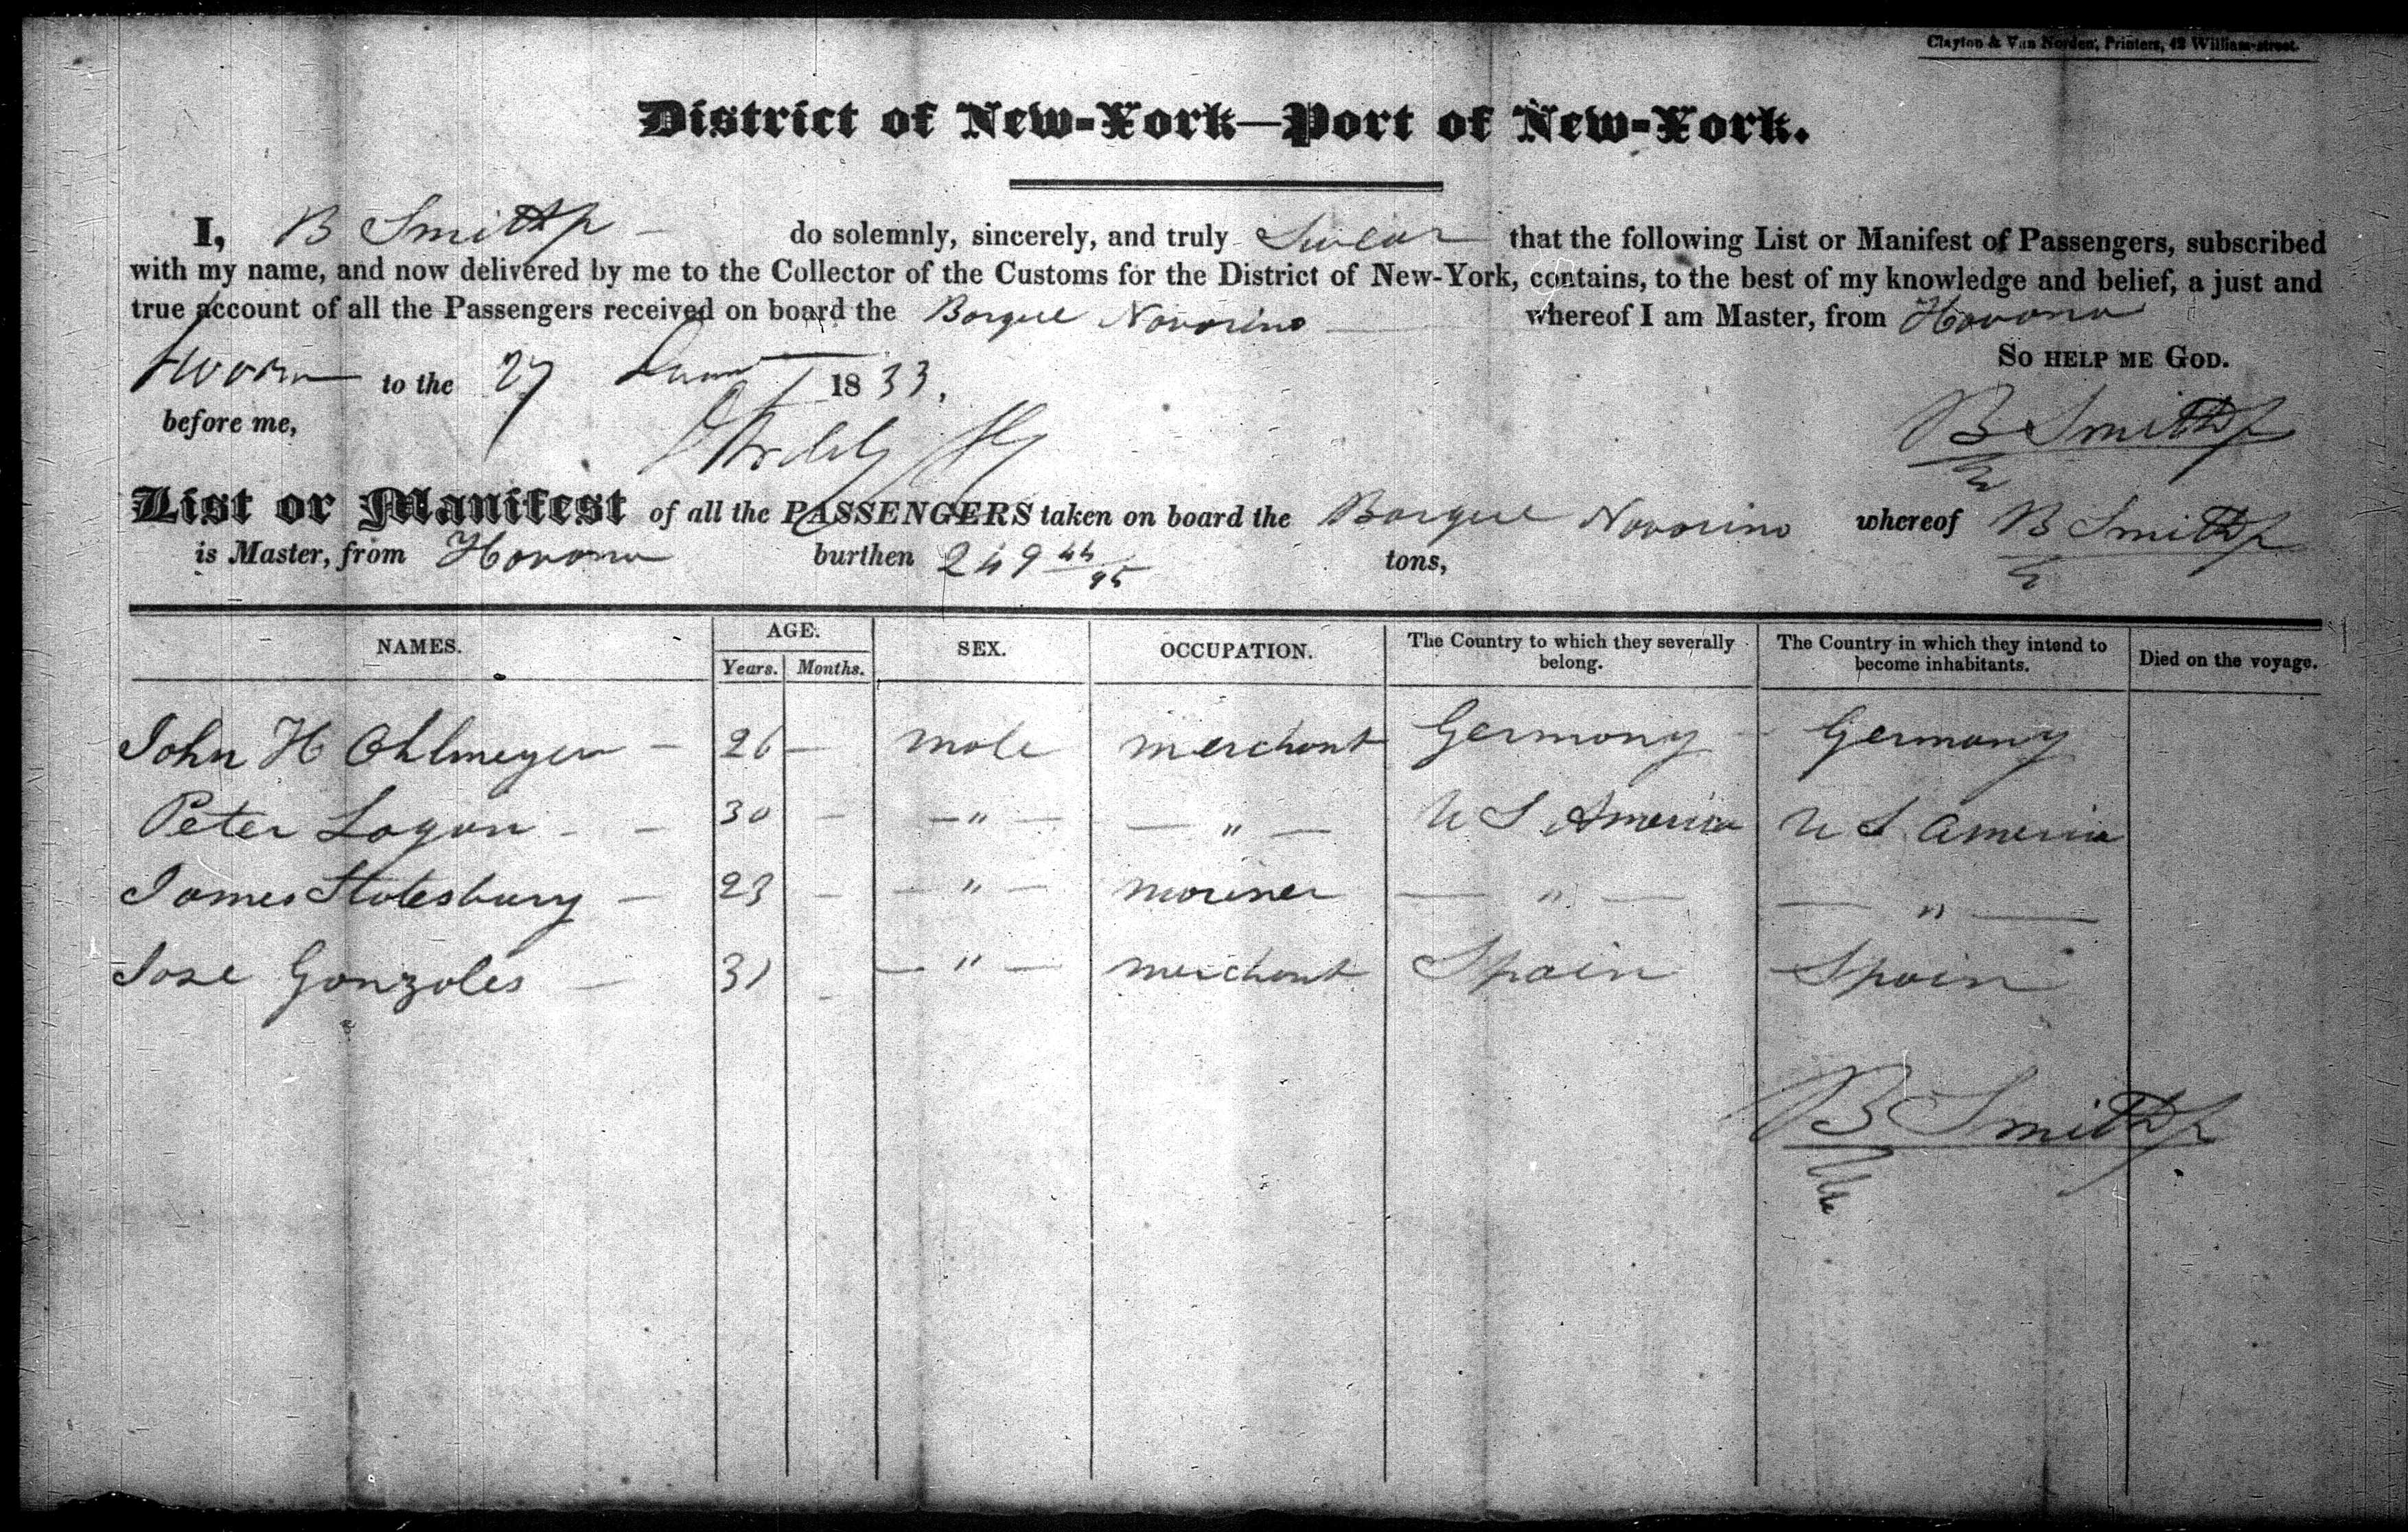 Clayton & Van Norden, Printers, 42 William-street.
District of New-York—Port of New-York.
I, B Smith do solemnly, sincerely, and truly Swear that the following List or Manifest of Passengers, subscribed
with my name, and now delivered by me to the Collector of the Customs for the District of New-York, contains, to the best of my knowledge and belief, a just and
true account of all the Passengers received on board the Barque Navarino whereof I am Master, from Havana
So help me God.
Sworn to the 27 1833.
before me,
B Smith
List or Manifest of all the PASSENGERS taken on board the Barque Navarino whereof B Smith
is Master, from Havana burthen 249 44/95 tons,
NAMES. AGE. SEX. OCCUPATION. The Country to which they severally belong. The Country in which they intend to become inhabitants. Died on the voyage.
Years. Months.
John H Ohlmeyer — 26 — male merchant Germany Germany
Peter Logan - — 30 — — " — — " — U S America U S America
James Stotesbury — 23 — — " — mariner — " — — " —
Jose Gonzales — 31 — — " — merchant Spain Spain
B Smith